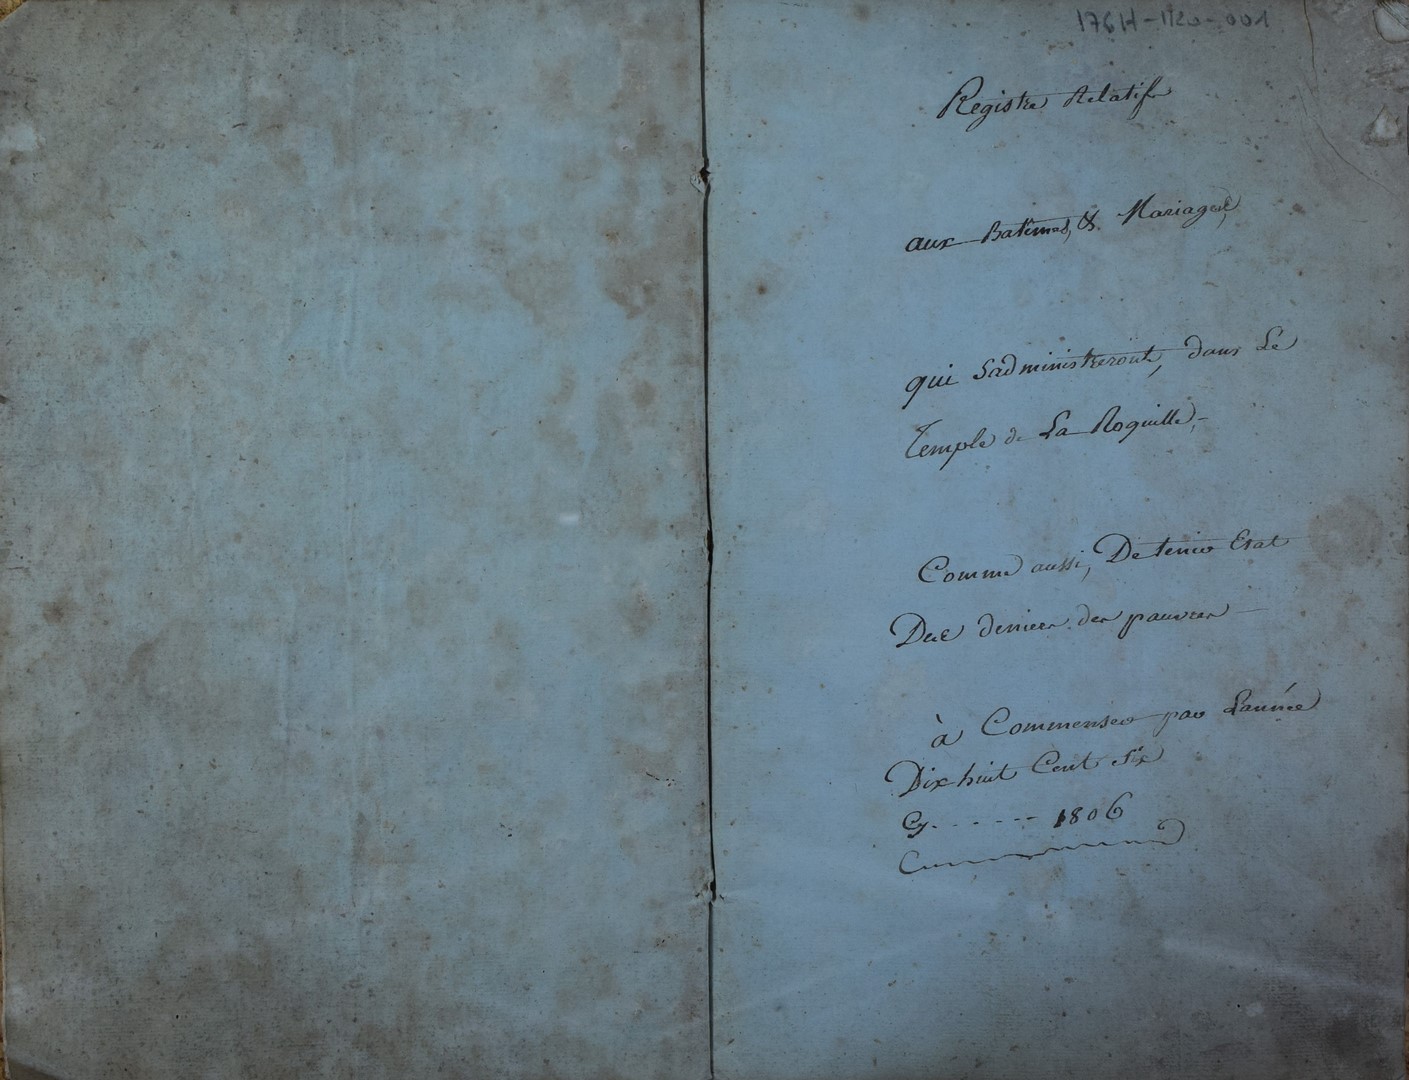 176H-1120-001
Registre Relatif
aux Batêmes, & Mariages,
qui S'administreront, dans Le
Temple de La Roquille,-
Comme aussi, De tenir Etat
Des deniers des pauvres
à Commenser par L'année
Dix huit Cent Six
Cy.------ 1806